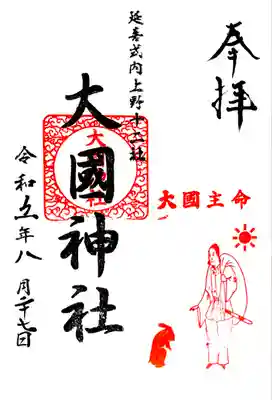 奉拝
延喜式内上野十二社
大國神社
大國主命
令和五年八月二十七日